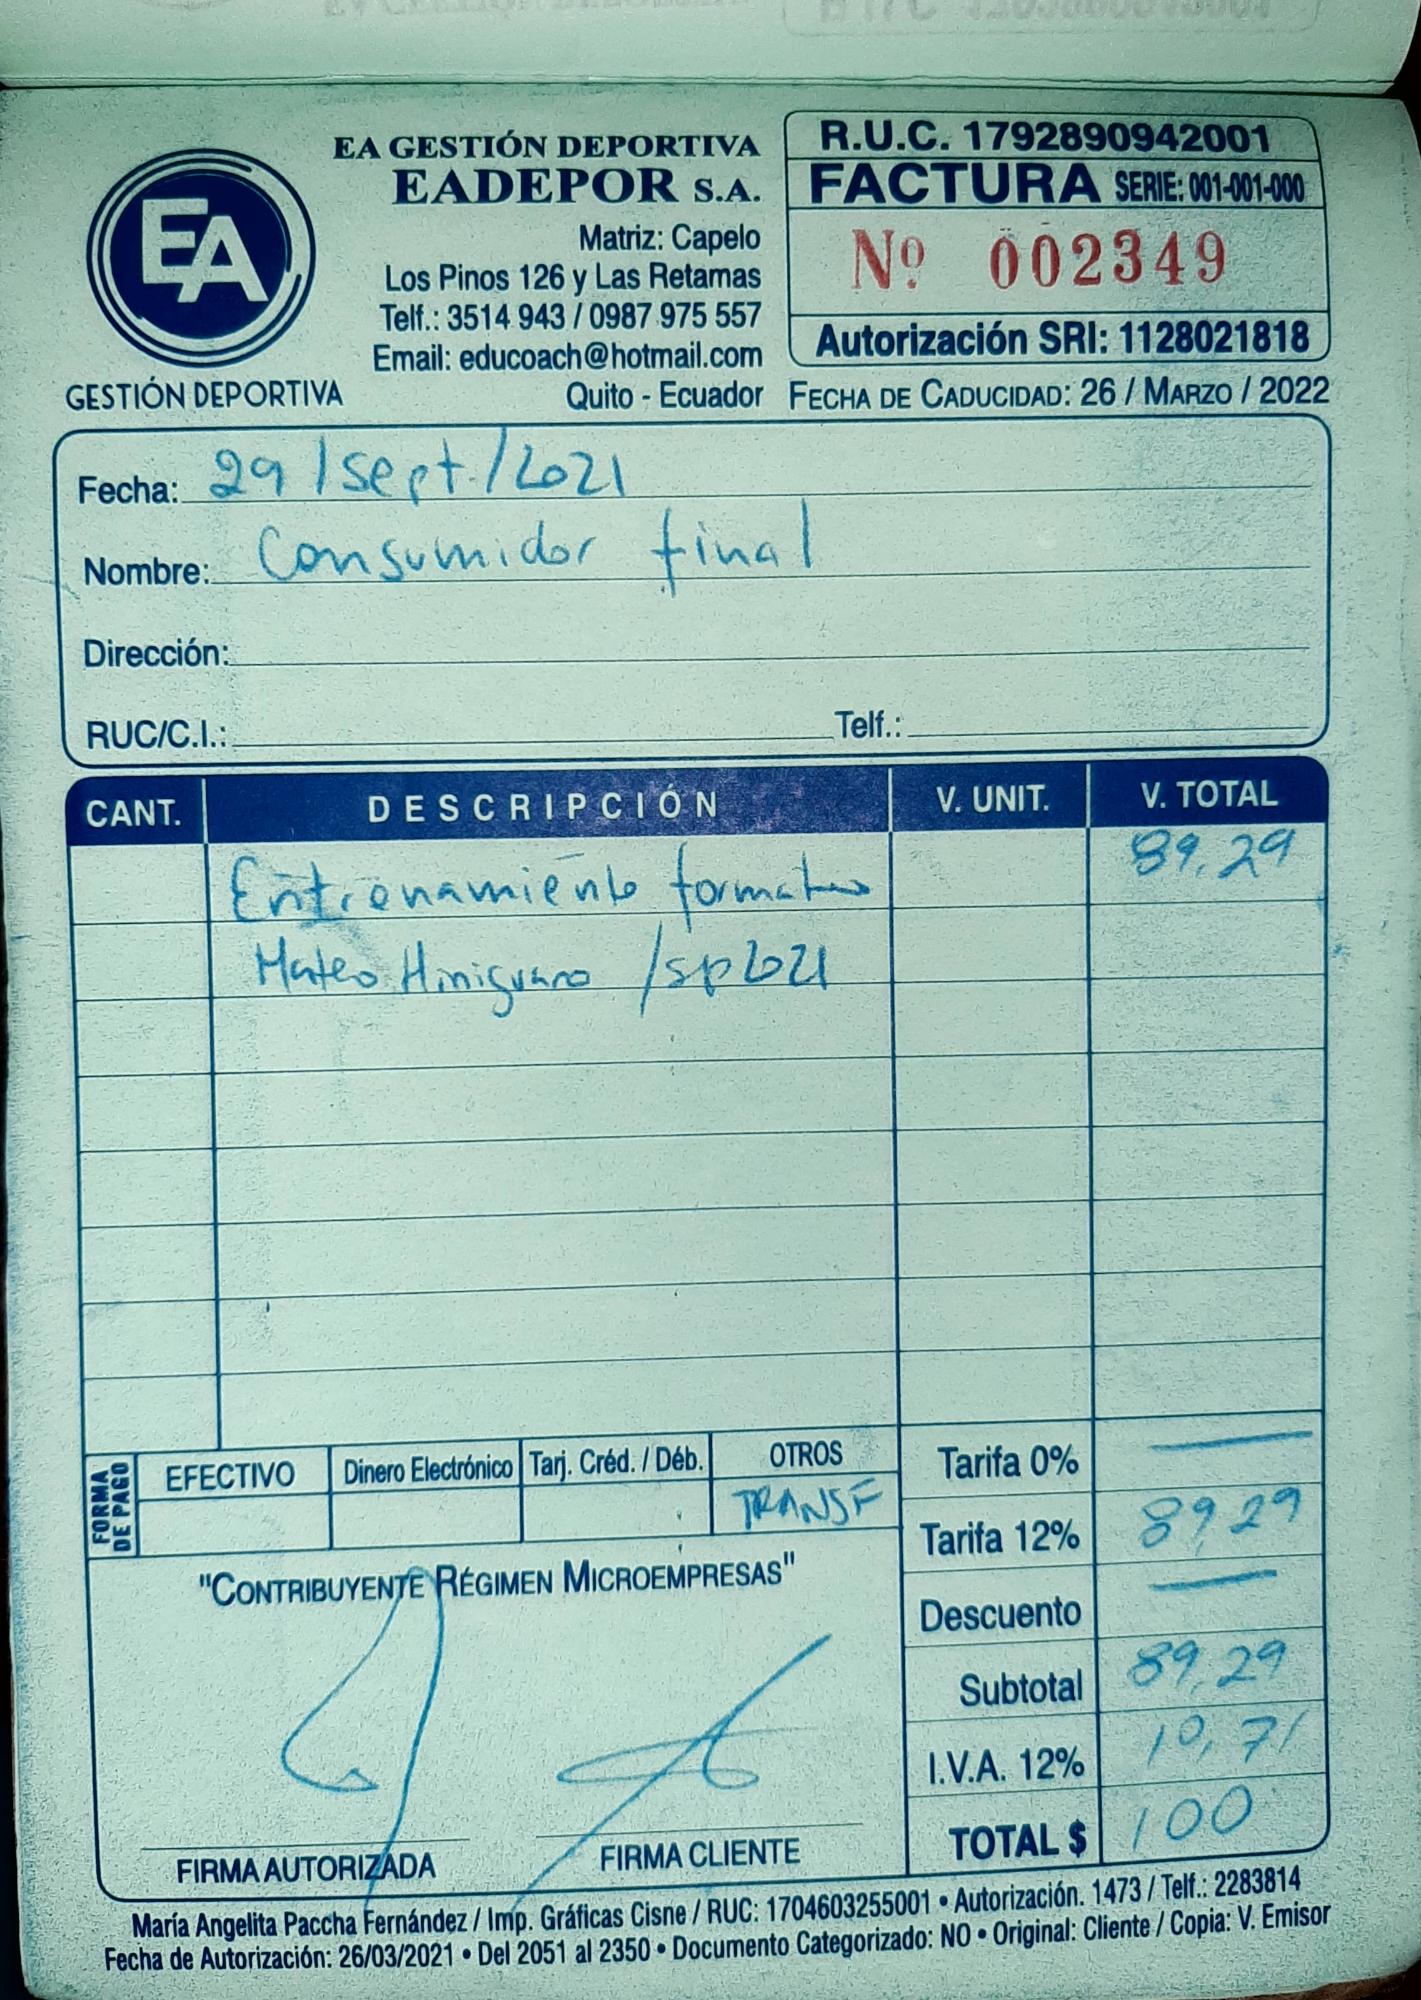 EA
GESTIÓN DEPORTIVA
EA GESTIÓN DEPORTIVA
EADEPOR S.A.
Matriz: Capelo
Los Pinos 126 y Las Retamas
Telf.: 3514 943 / 0987 975 557
Email: educoach@hotmail.com
Quito - Ecuador
R.U.C. 1792890942001
FACTURA SERIE: 001-001-000
Nº 002349
Autorización SRI: 1128021818
FECHA DE CADUCIDAD: 26 / MARZO / 2022
Fecha: 29/sept./2021
Nombre: Consumidor final
Dirección:
RUC/C.I.: Telf.:
CANT. DESCRIPCIÓN V. UNIT. V. TOTAL
Entrenamiento 89,29
Mateo
FORMA DE PAGO
EFECTIVO Dinero Electrónico Tarj. Créd. / Déb. OTROS
TRANSF
Tarifa 0%
Tarifa 12% 89,29
Descuento
Subtotal 89,29
I.V.A. 12% 10,71
TOTAL $ 100
"CONTRIBUYENTE RÉGIMEN MICROEMPRESAS"
FIRMA AUTORIZADA FIRMA CLIENTE
María Angelita Paccha Fernández / Imp. Gráficas Cisne / RUC: 1704603255001 • Autorización. 1473 / Telf.: 2283814
Fecha de Autorización: 26/03/2021 • Del 2051 al 2350 • Documento Categorizado: NO • Original: Cliente / Copia: V. Emisor